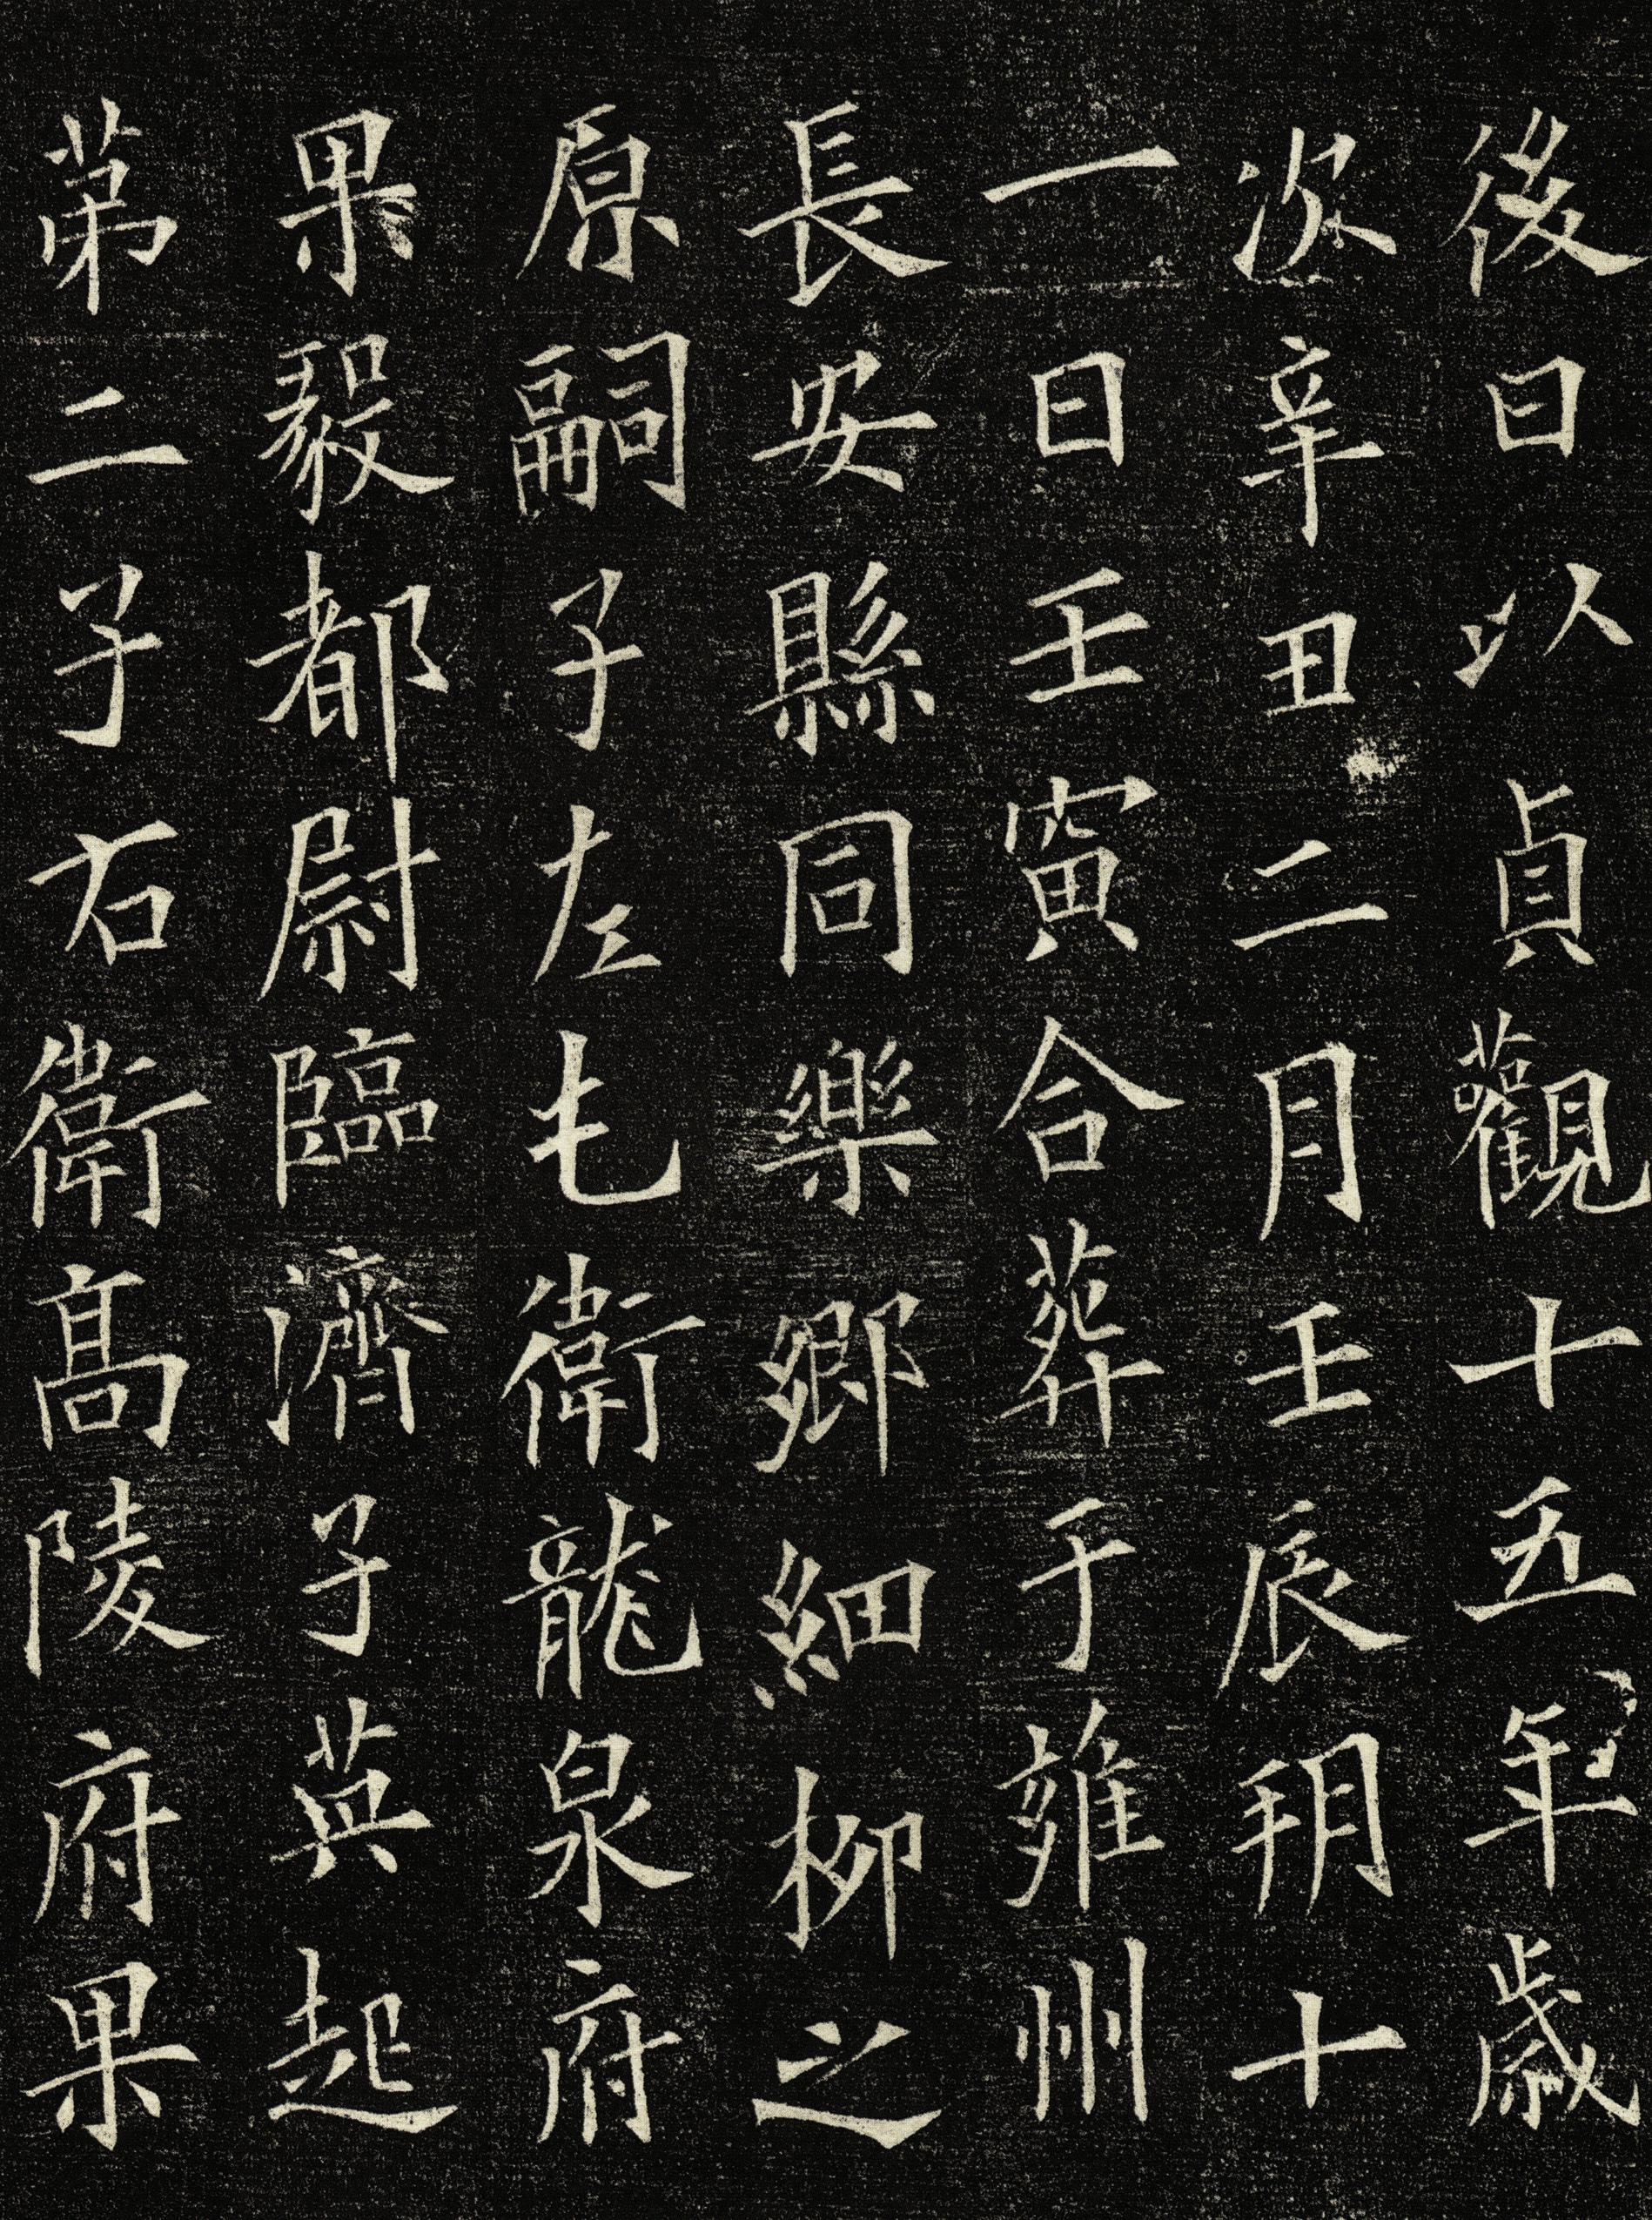 後日以貞觀十五年歲
次辛丑二月壬辰玥十
一日壬寅合葬于雍州
長安縣同樂鄉細柳之
原嗣子左屯衛龍泉府
果毅都尉臨濟子英起
第二子右衛高陵府果